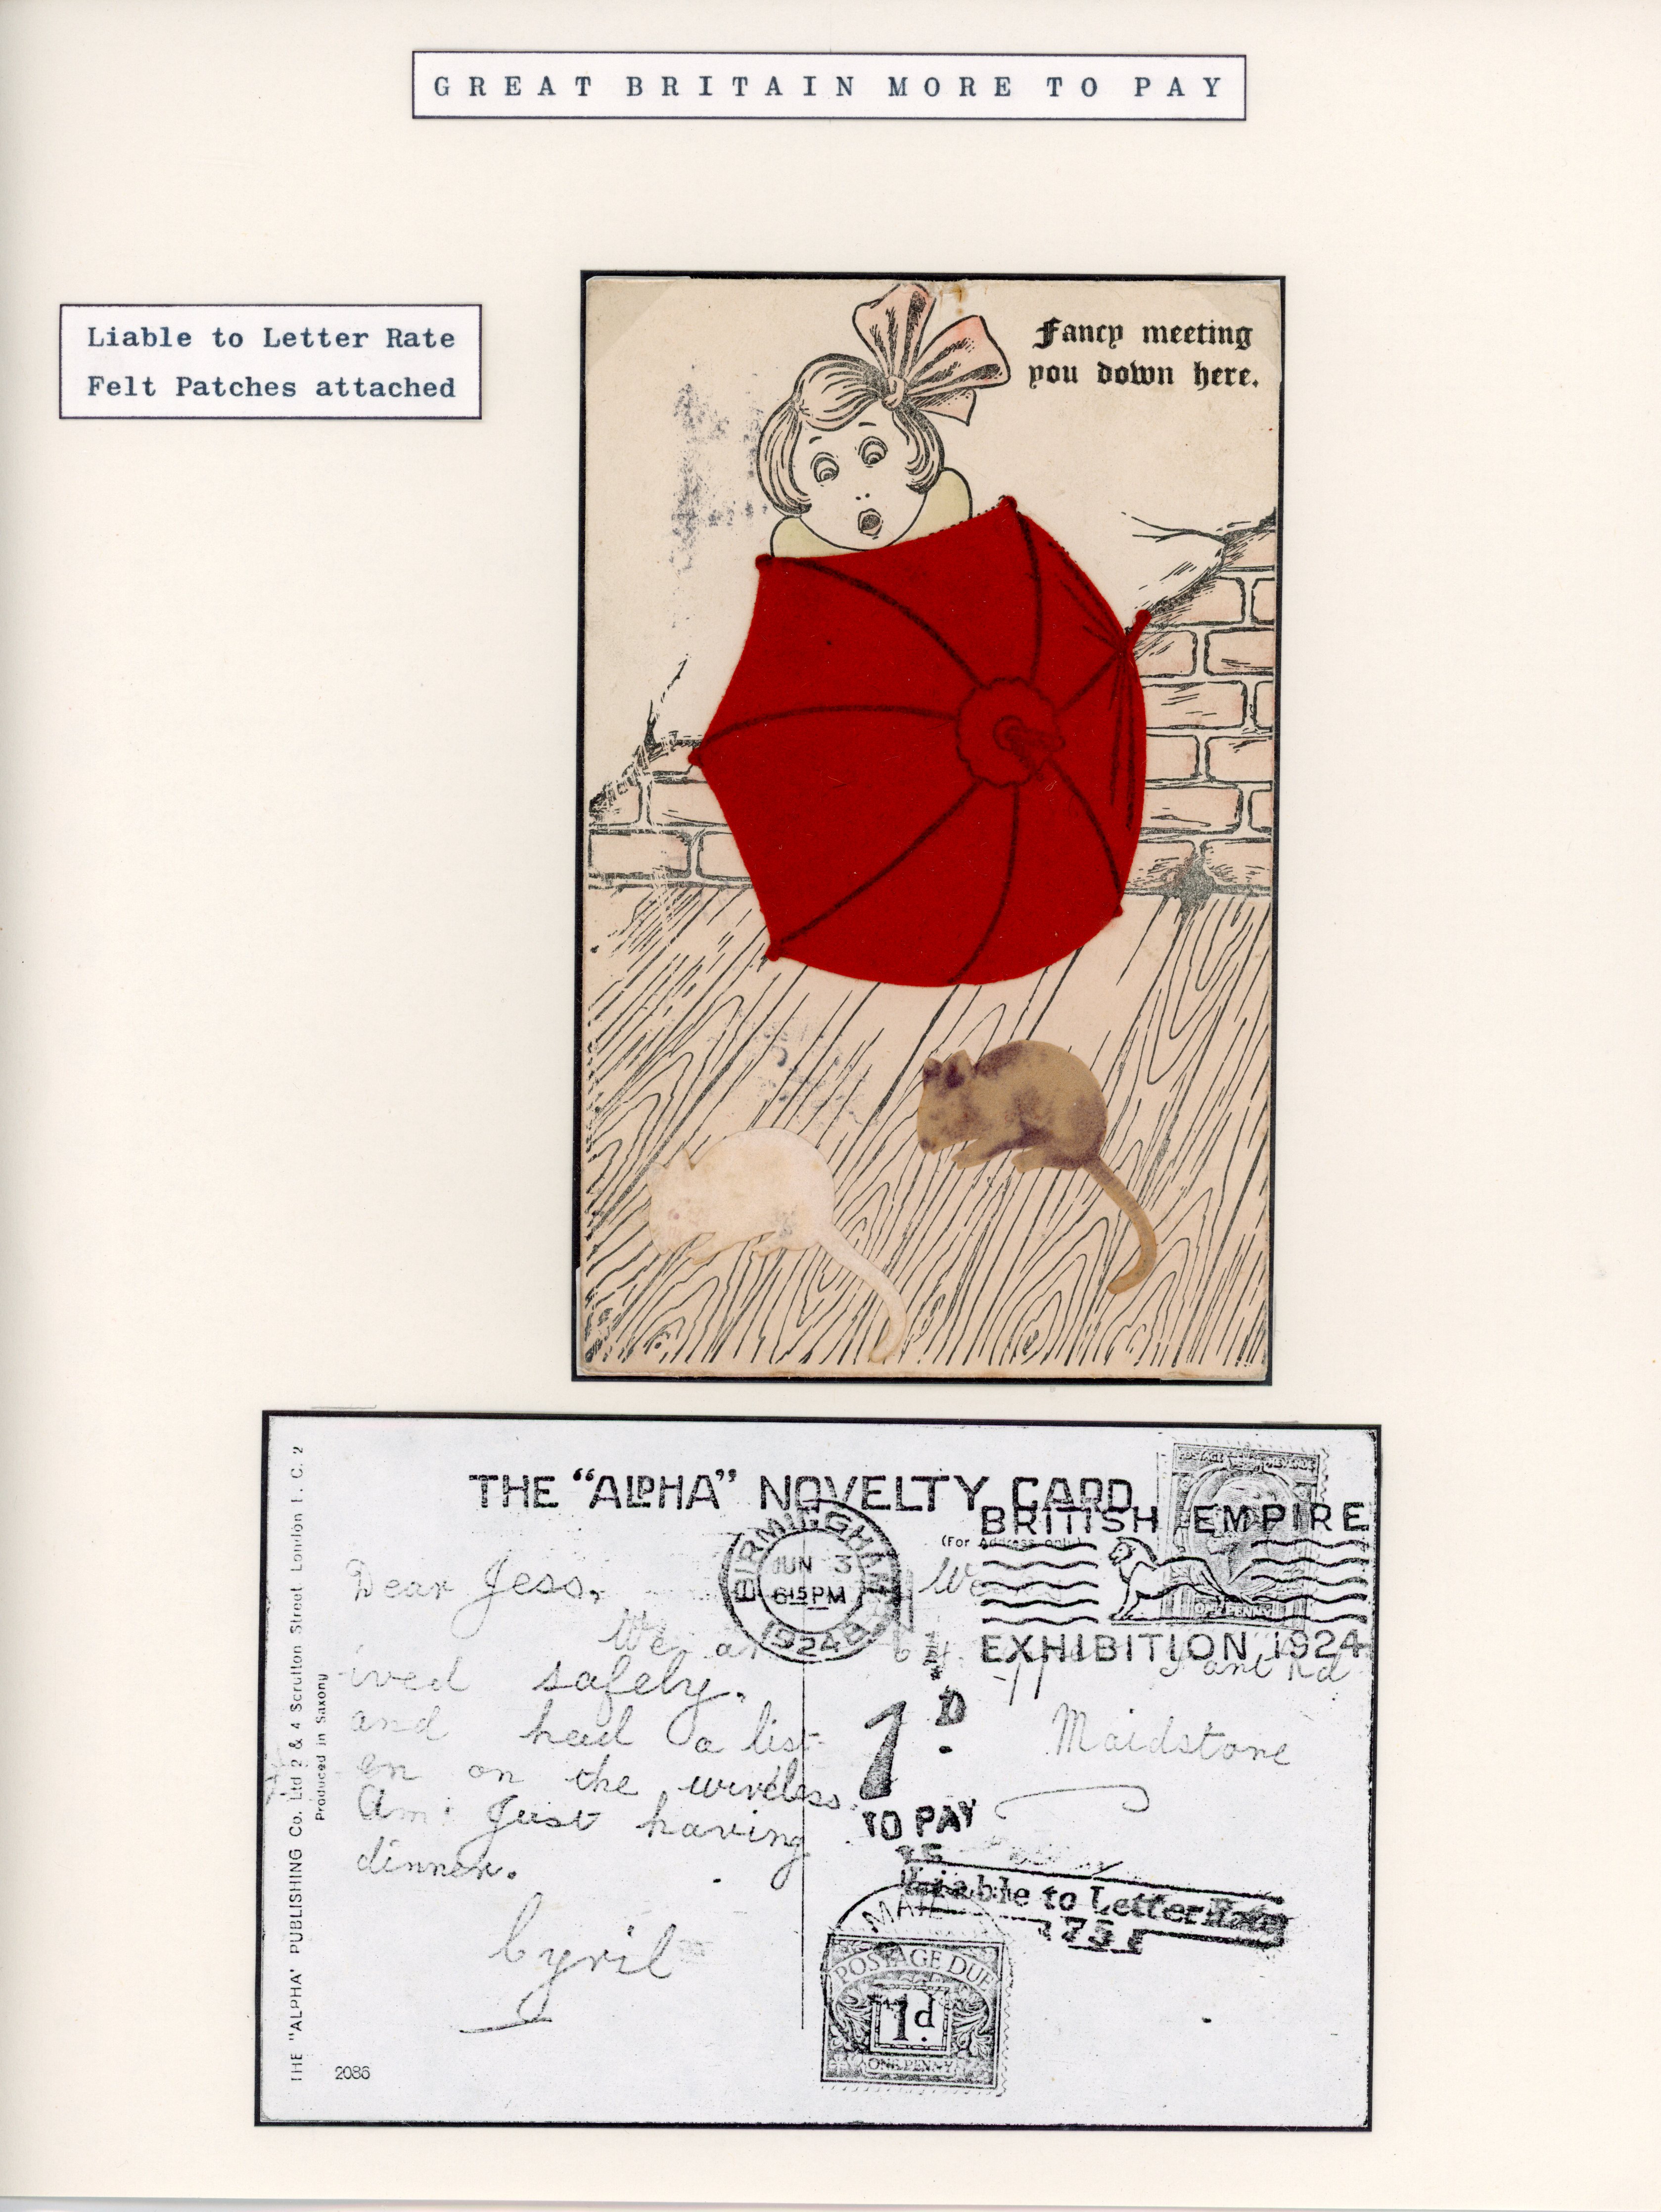 GREAT BRITAIN MORE TO PAY
Liable to Letter Rate
Felt Patches attached
Fancy meeting
you down here.
THE "ALPHA" NOVELTY CARD
(For Address only)
BIRMINGHAM
JUN 3
615PM
1924
BRITISH EMPIRE
EXHIBITION 1924
POSTAGE REVENUE
ONE PENNY
Dear Jess,
We arr
ived safely.
and had a list
en on the wireless
Am Just having
dinner.
Cyril
Rd
Maidstone
1D.
TO PAY
Liable to Letter Rate
MAI
POSTAGE DUE
1d
ONE PENNY
THE "ALPHA" PUBLISHING Co. Ltd 2 & 4 Scrutton Street London E. C. 2
Produced in Saxony
2086